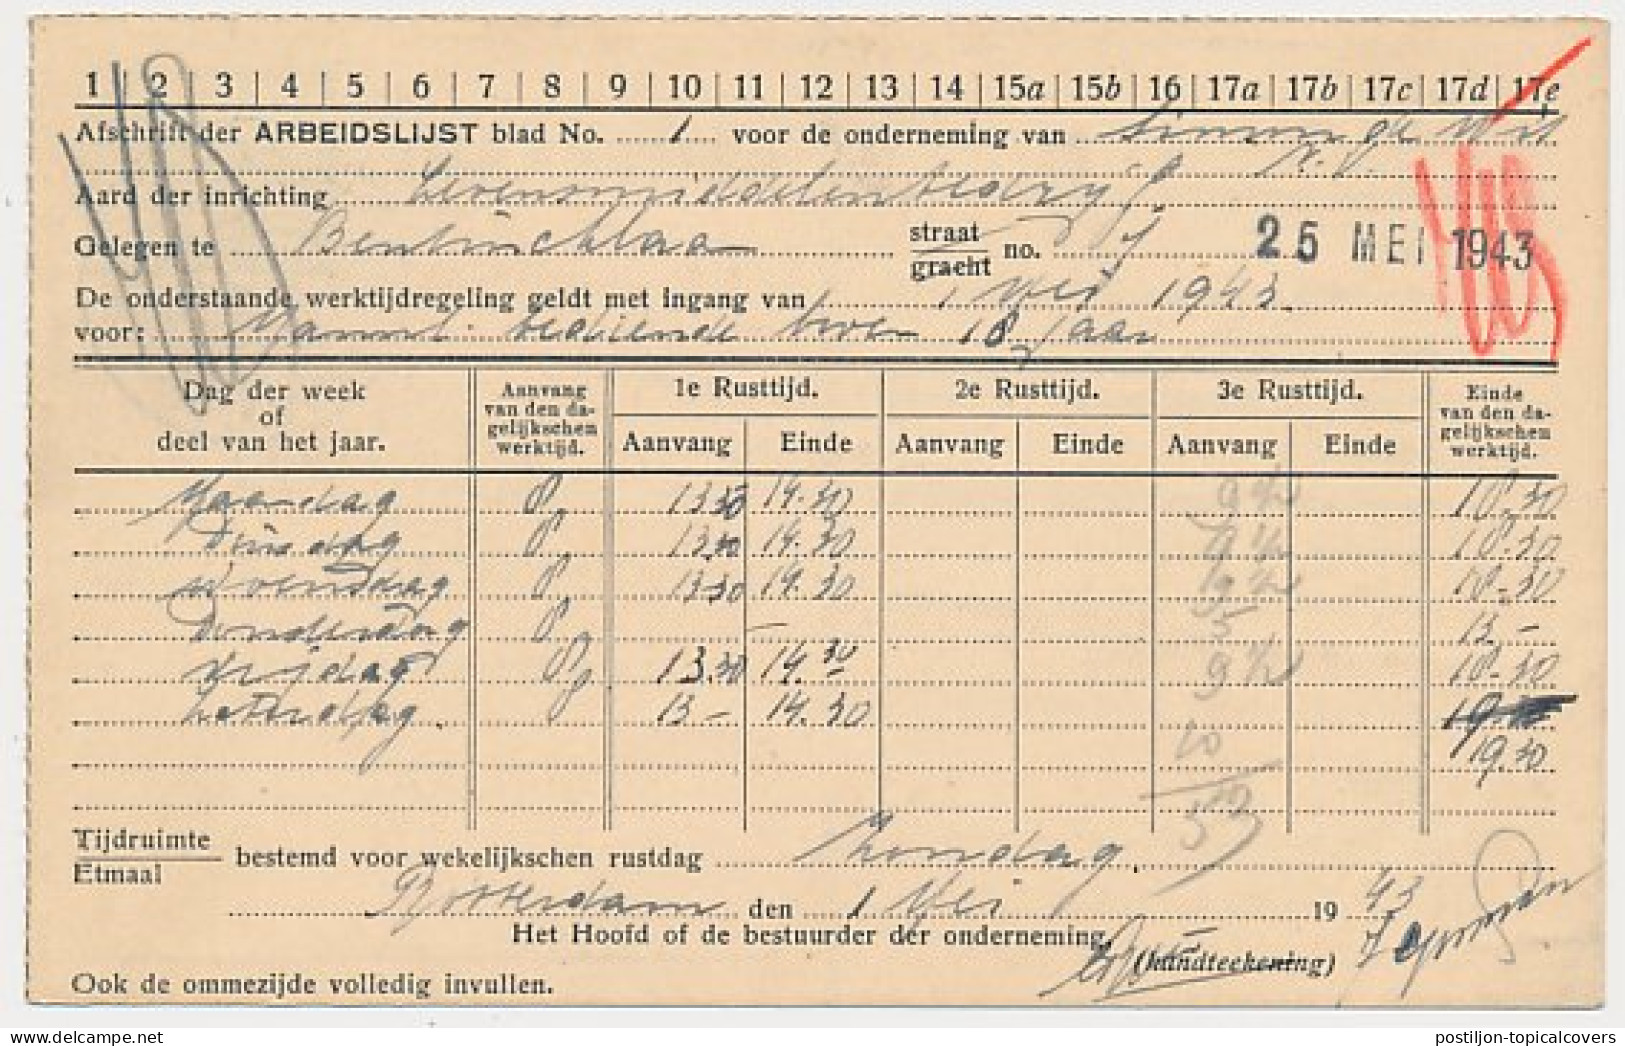 1 | 2 | 3 | 4 | 5 | 6 | 7 | 8 | 9 | 10 | 11 | 12 | 13 | 14 | 15a | 15b | 16 | 17a | 17b | 17c | 17d | 17e
Afschrift der ARBEIDSLIJST blad No. 1 voor de onderneming van Simon de Wit
N.V.
Aard der inrichting Levensmiddelenbedrijf
Gelegen te straat/gracht no. 25 MEI 1943
De onderstaande werktijdregeling geldt met ingang van 1 Mei 1943.
voor: Mannl. bediende boven 18 Jaar
Dag der week of deel van het jaar. | Aanvang van den dagelijkschen werktijd. | 1e Rusttijd. | 2e Rusttijd. | 3e Rusttijd. | Einde van den dagelijkschen werktijd.
Aanvang | Einde | Aanvang | Einde | Aanvang | Einde
Maandag 8 13.30 14.30 9 1/2 18.30
Dinsdag 8 13.30 14.30 9 1/2 18.30
Woensdag 8 13.30 14.30 9 1/2 18.30
Donderdag 8 – 5 13.–
Vrijdag 8 13.30 14.30 9 1/2 18.30
Zaterdag 8 13 – 14.30
10 19.30
53
Tijdruimte
Etmaal
bestemd voor wekelijkschen rustdag Zondag
Rotterdam den 1 Mei 1943
Het Hoofd of de bestuurder der onderneming,
(handteekening)
Ook de ommezijde volledig invullen.
delcampe.net
postiljon-topicalcovers